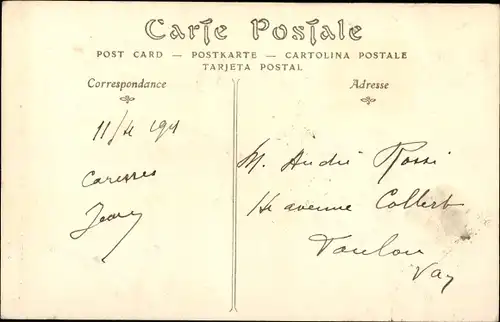 Carte Postale
POST CARD — POSTKARTE — CARTOLINA POSTALE
TARJETA POSTAL
Correspondance
Adresse
11/4 1911
Caresses
Jean
M. André Rossi
14 avenue Colbert
Toulon
Var